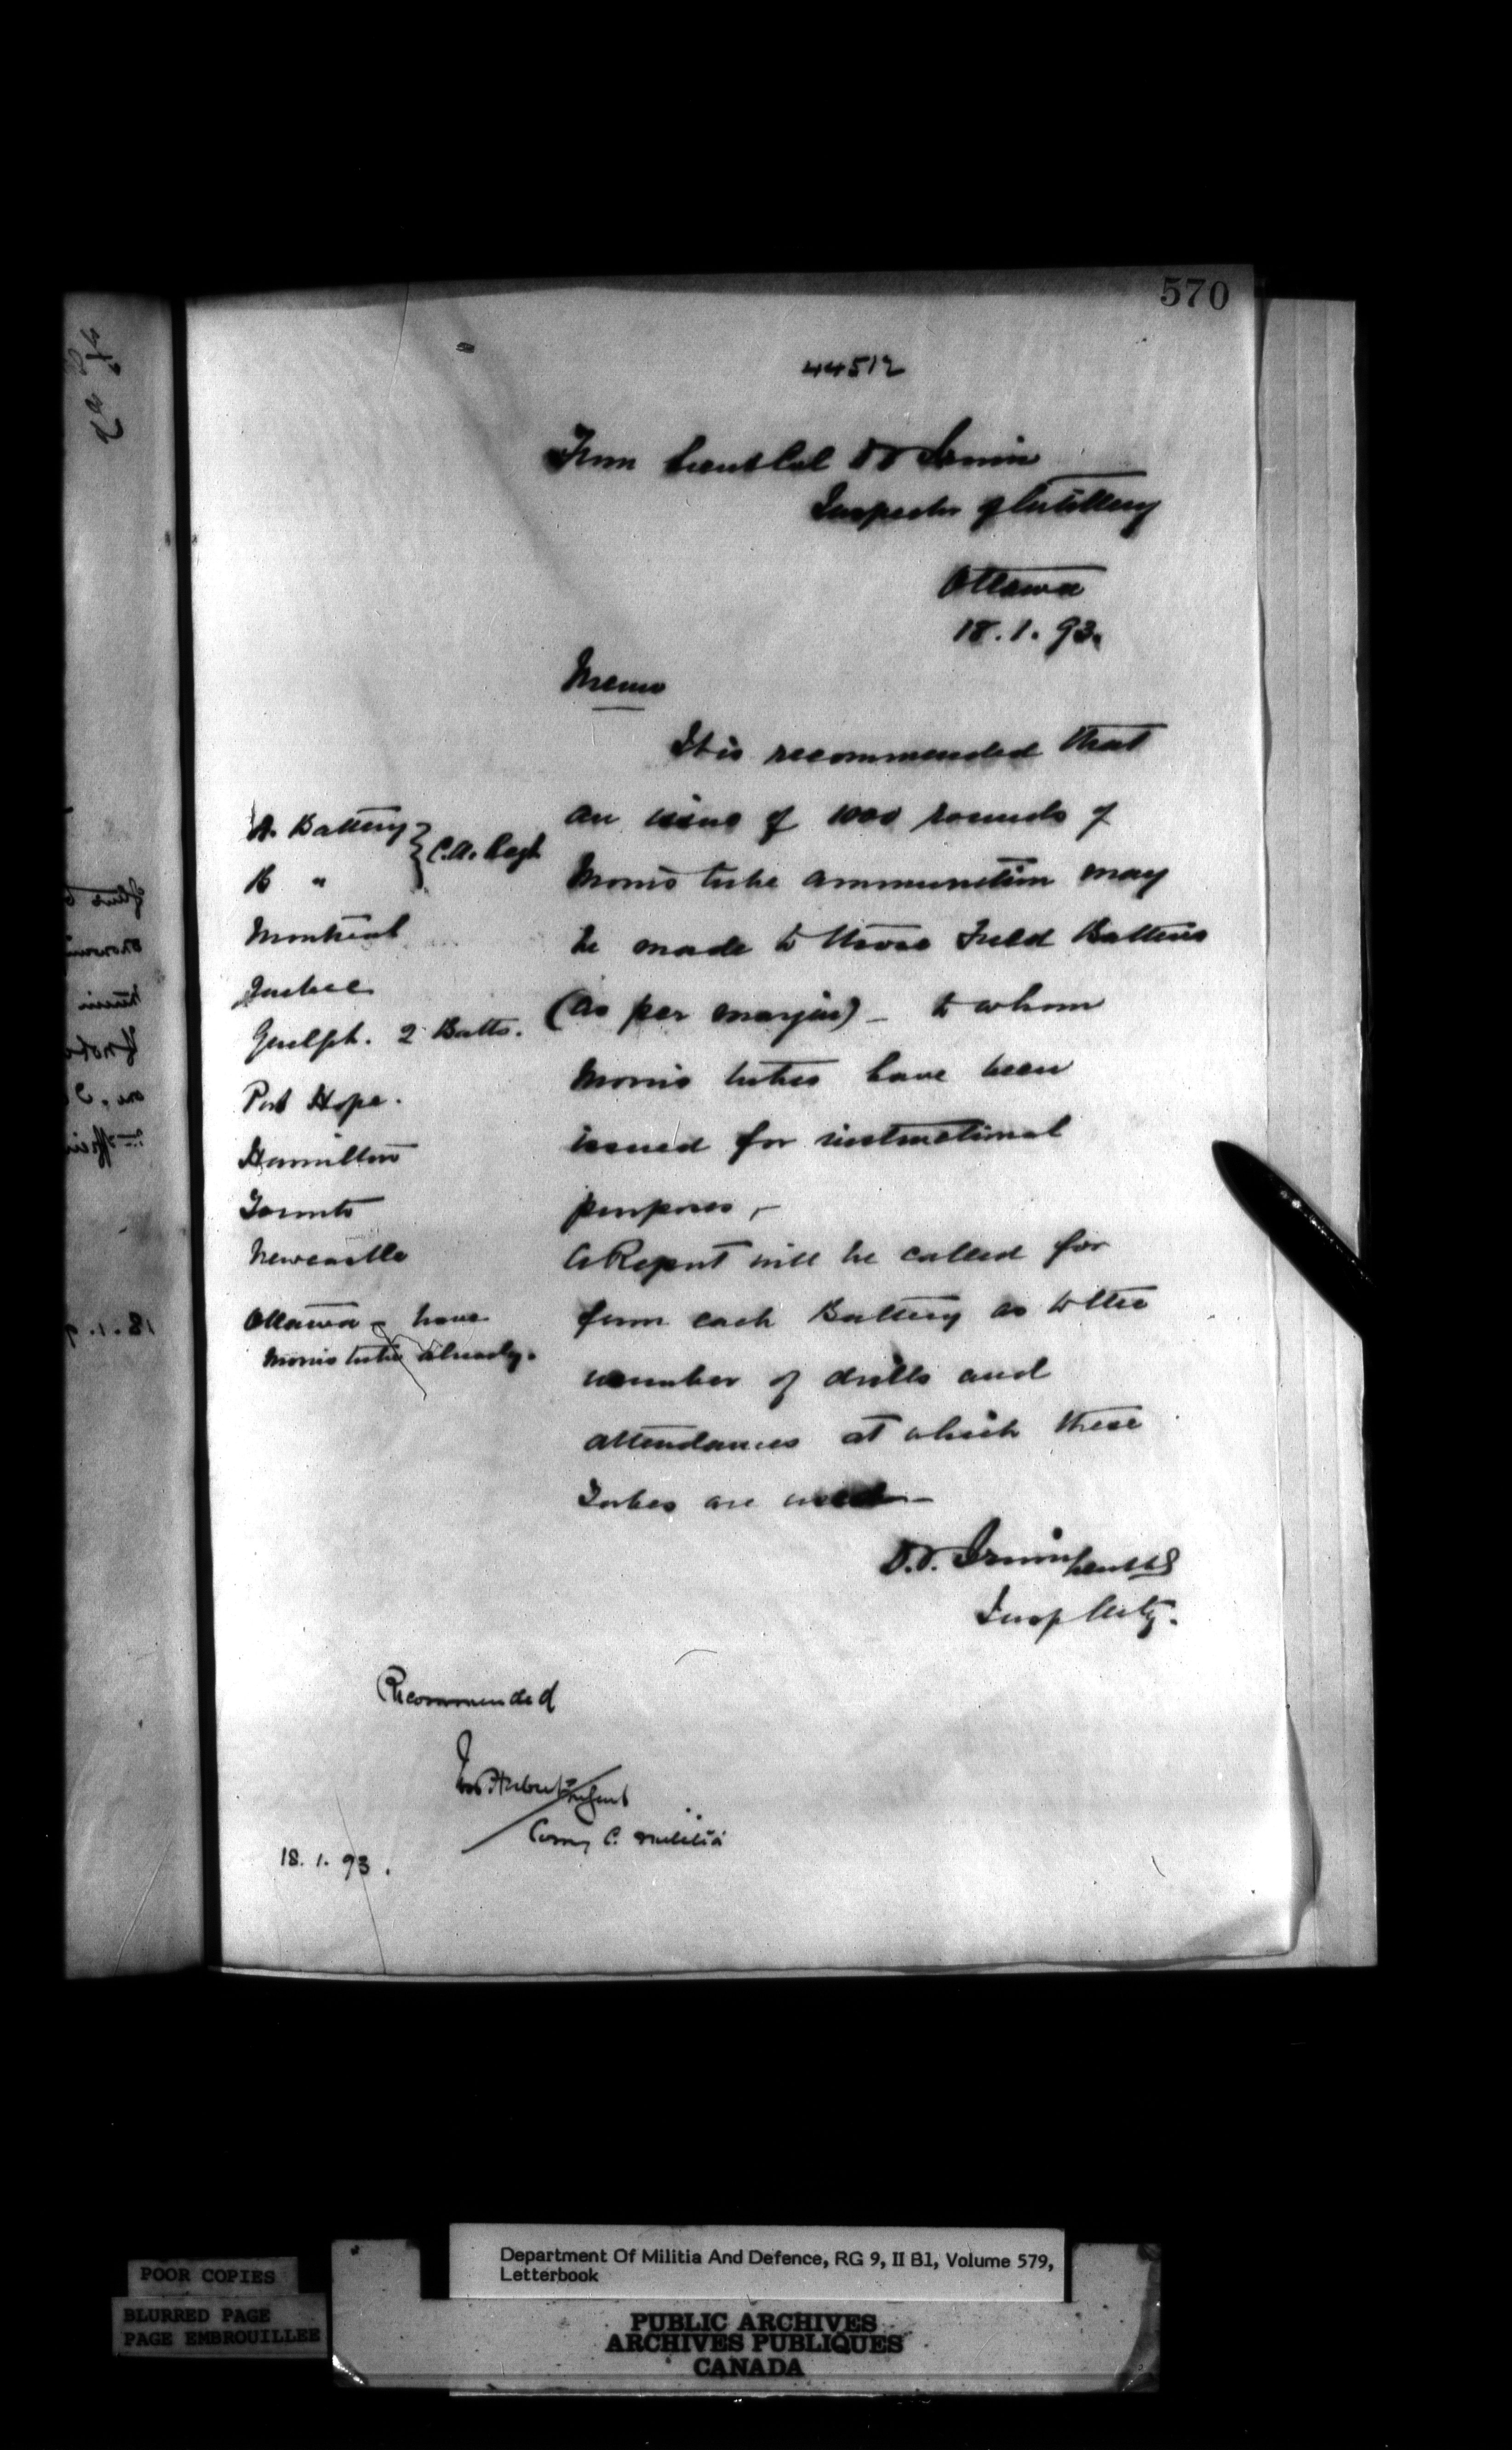 570
44512
From Lieut Col D T Irwin
Inspector of Artillery
Ottawa
18.1.93.
Memo
It is recommended that
an issue of 1000 rounds of
Morris tube ammunition may
be made to those Field Batteries
(as per margin) - to whom
Morris tubes have been
issued for instructional
purposes,-
A Report will be called for
from each Battery as to the
number of drills and
attendances at which these
Tubes are used-
D.T. Irwin Lieut Col
Insp Arty.
A. Battery } C.A. Regt
B "
Montreal
Quebec
Guelph. 2 Batts.
Port Hope.
Hamilton
Toronto
Newcastle
Ottawa - have
Morris tube already.
Recommended
Ivor Herbert
Comg C. Militia
18.1.93.
18.1.9
POOR COPIES
BLURRED PAGE
PAGE EMBROUILLEE
Department Of Militia And Defence, RG 9, II B1, Volume 579,
Letterbook
PUBLIC ARCHIVES
ARCHIVES PUBLIQUES
CANADA